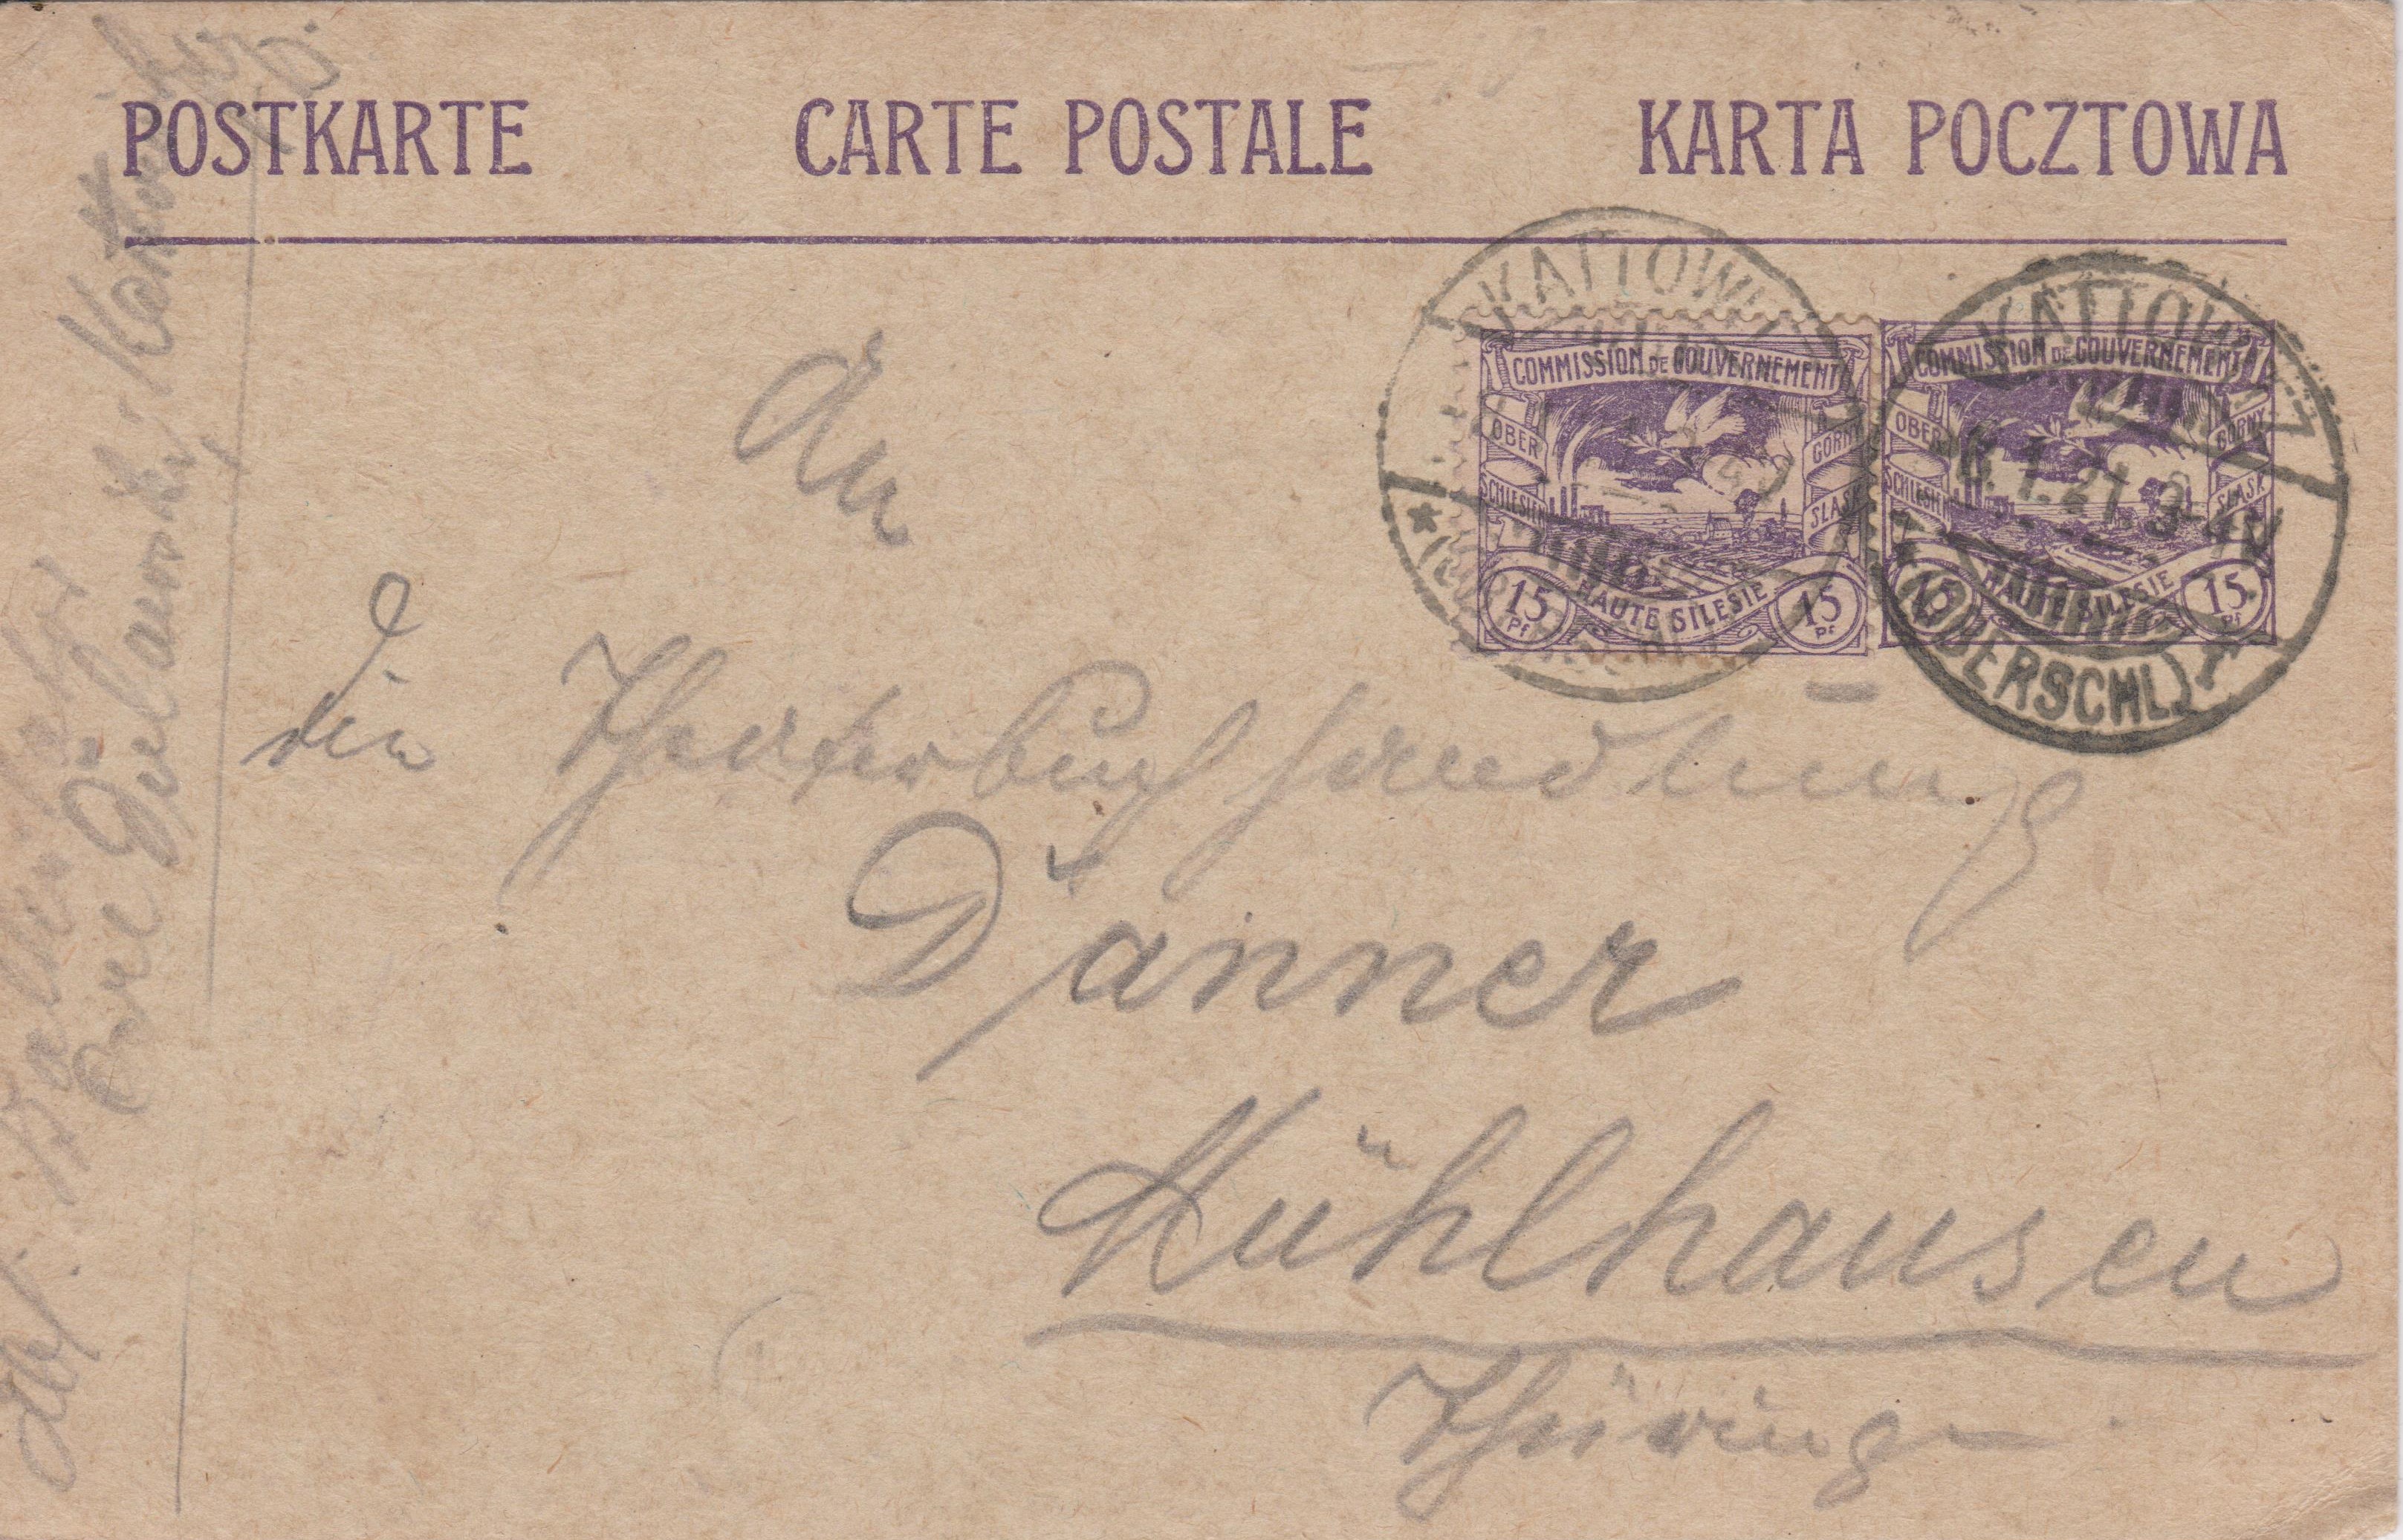 POSTKARTE CARTE POSTALE KARTA POCZTOWA
COMMISSION DE GOUVERNEMENT
OBER SCHLESIEN
GORNY SLASK
HAUTE SILESIE
15 Pf 15 Pf
COMMISSION DE GOUVERNEMENT
OBER SCHLESIEN
GORNY SLASK
HAUTE SILESIE
15 Pf 15 Pf
KATTOWITZ
KATTOWITZ
6.1.21.
(OBERSCHL.)
An
die Theaterbuchhandlung
Danner
Mühlhausen
Thüring
Abs.
Kattowitz